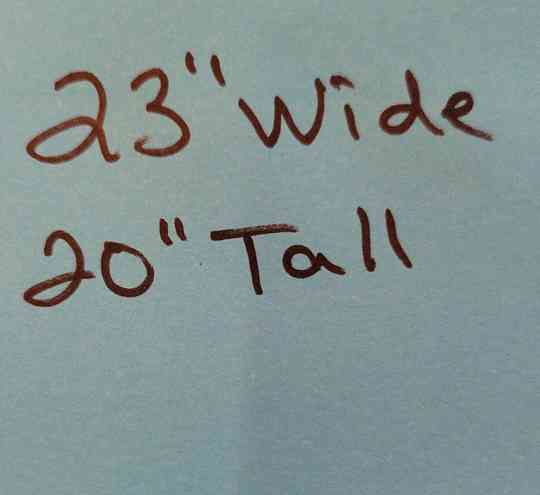 23" Wide
20" Tall